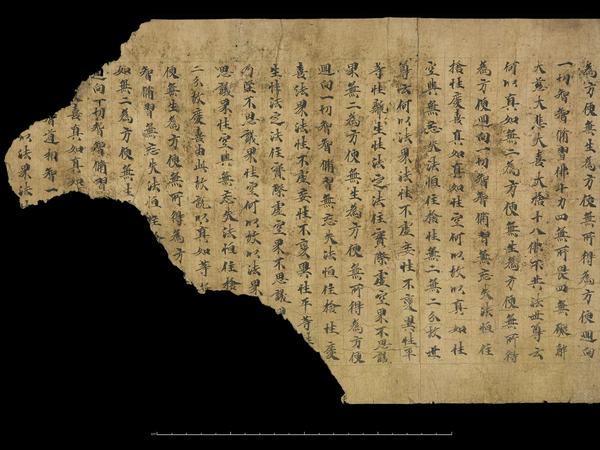 為方便無生為方便無所得為方便迴向
一切智智脩習佛十力四無所畏四無礙解
大慈大悲大喜大捨十八佛不共法世尊云
何以真如無二為方便無生為方便無所得
為方便迴向一切智智脩習無忘失法恒住
捨性慶喜真如真如性空何以故以真如性
空與無忘失法恒住捨性無二無二分故世
尊云何以法界法性不虛妄性不變異性平
等性離生性法定法住實際虛空界不思議
界無二為方便無生為方便無所得為方便
迴向一切智智脩習無忘失法恒住捨性慶
喜法界法性不虛妄性不變異性平等性
生性法定法住實際虛空界不思議
不思議界性空何以故以法界
思議界性空與無忘失法恒住捨
二分故慶喜由此故說以真如等
便無生為方便無所得為方
智脩習無忘失法恒住
如無二為方便無生
迴向一切智智脩習
喜真如真如
道相智一
以法界法